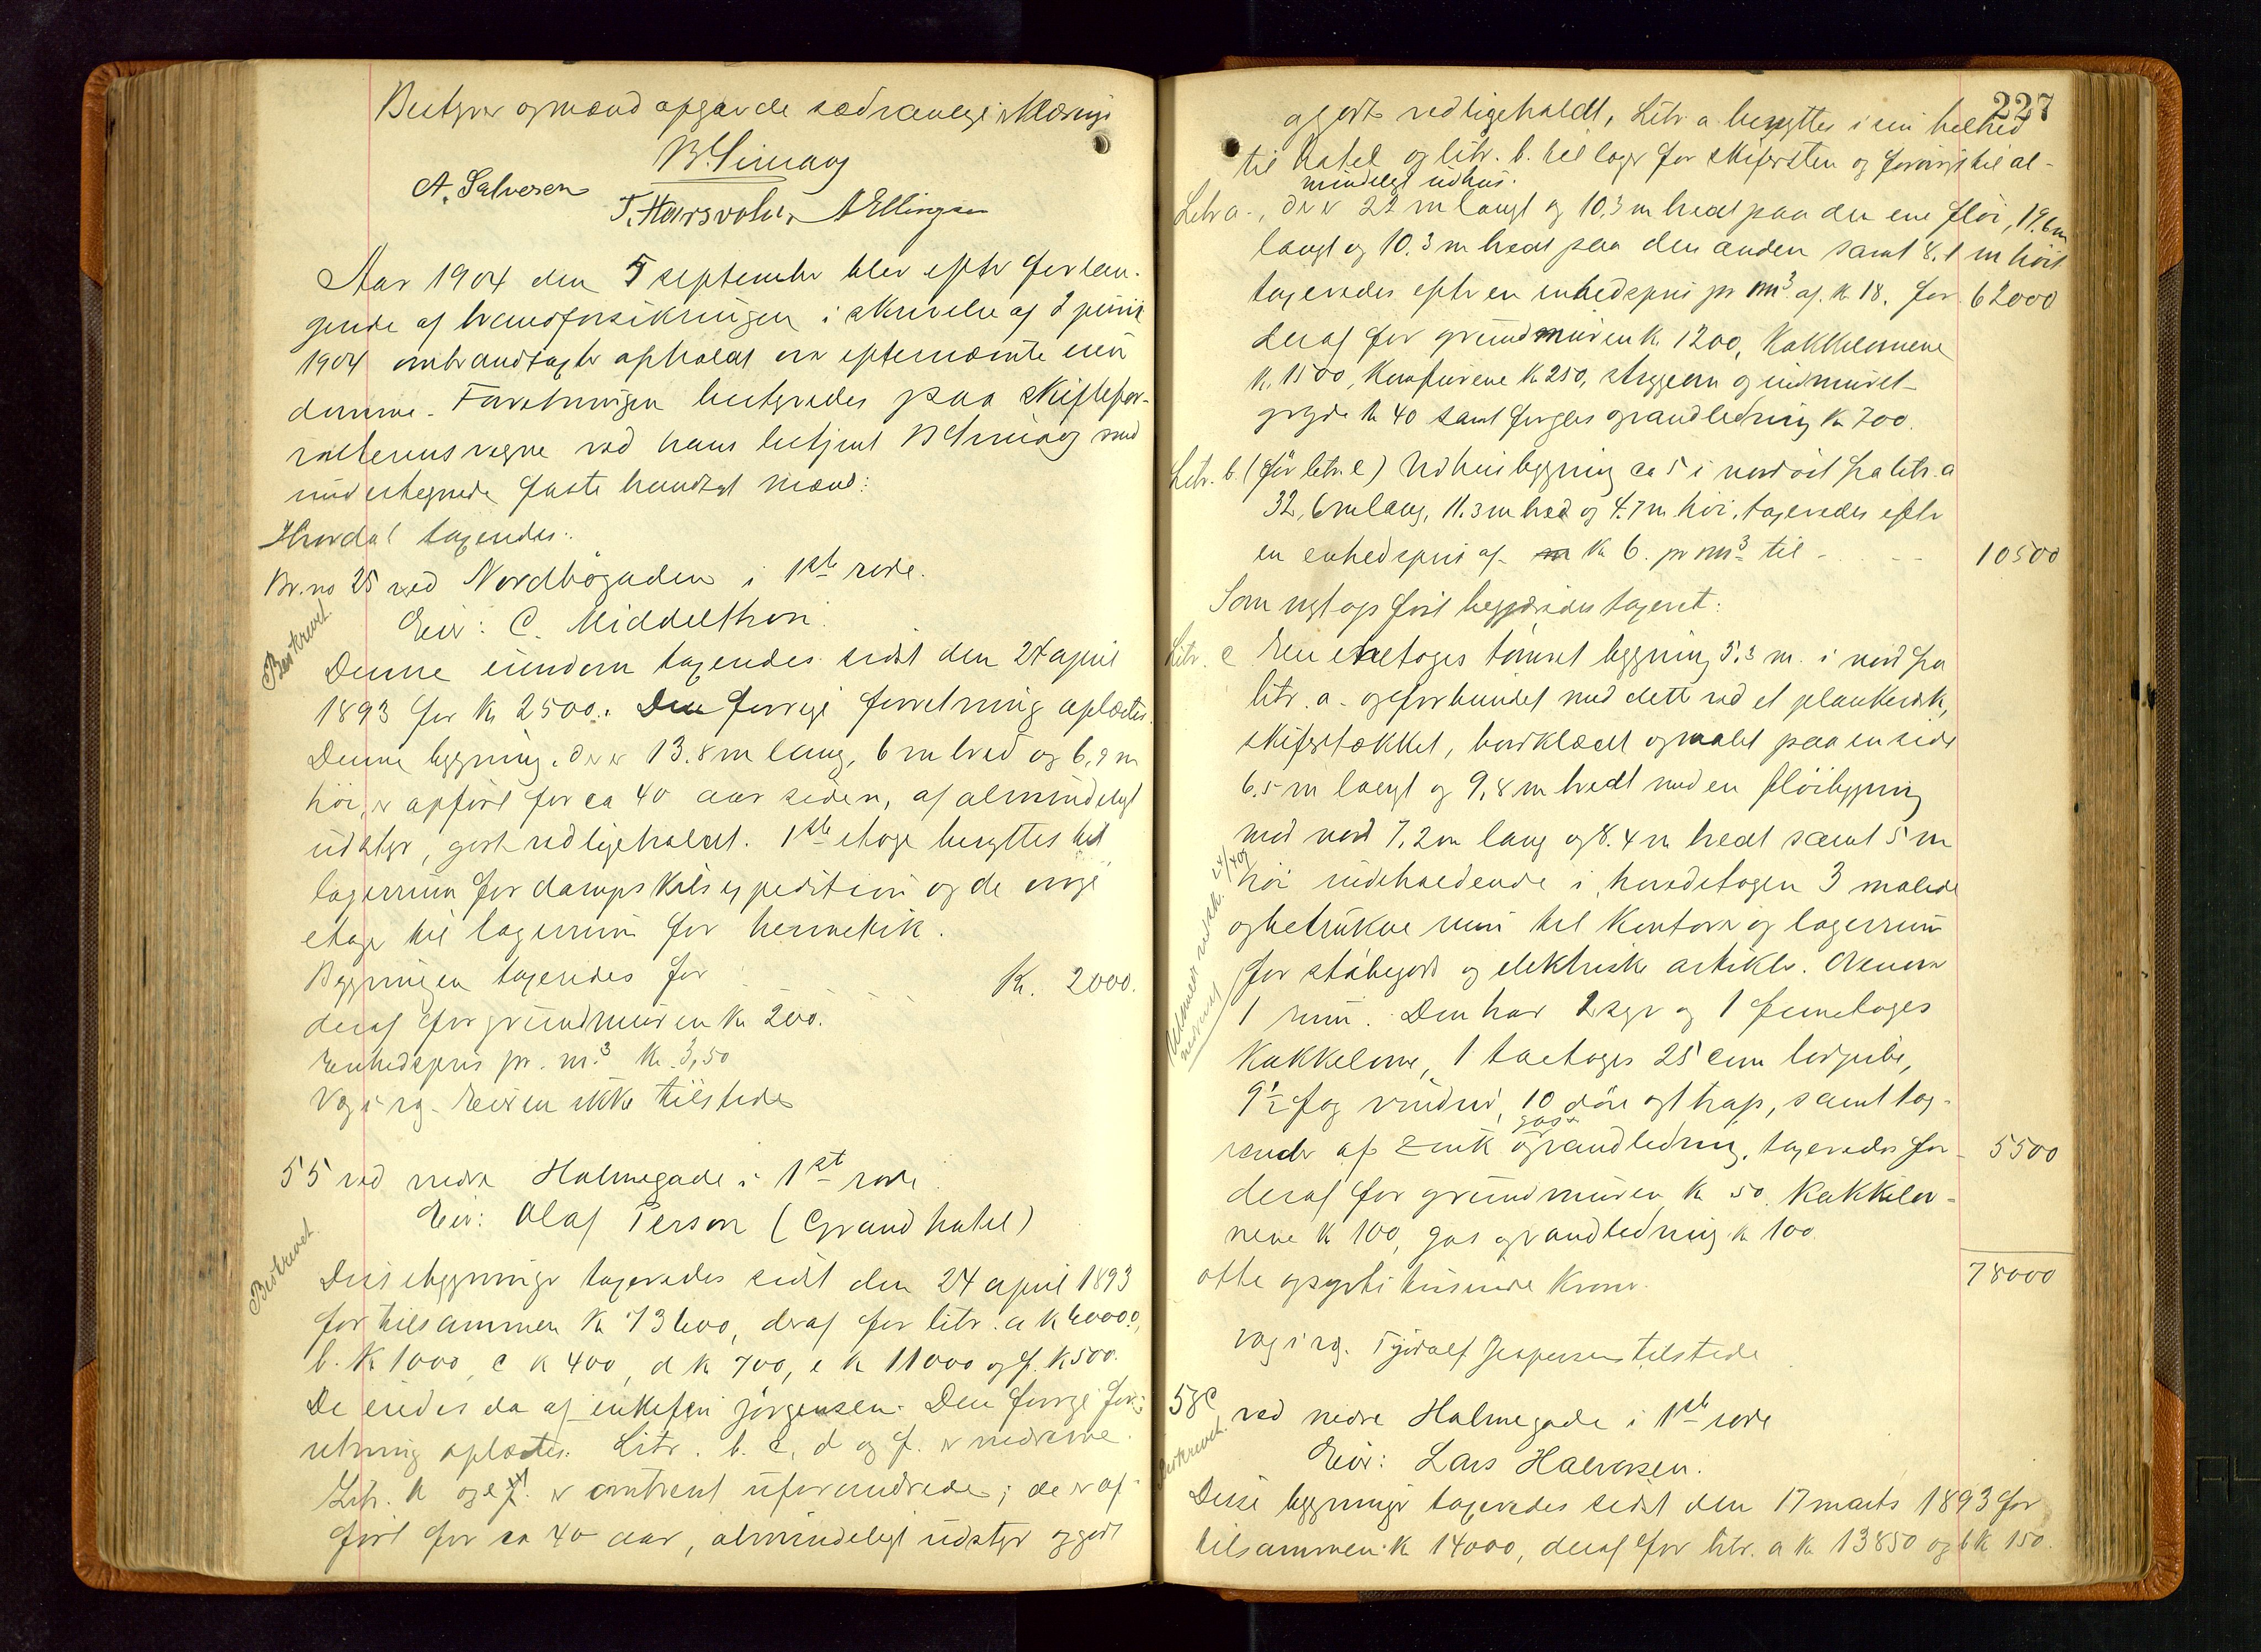 Bestyrer og mænd afgav de sædvanlige erklæringer
B. Simaas
A. Salvesen T. Haarsvolur A Ellingsen
Aar 1904 den 5 september blev efter forlan-
gende af brandforsikringen i skrivelse af 2 juni
1904 ombrandtaxter afholdt over efternævnte eien
domme. Forretningen bestyredes paa skiftefor-
valterens vegne ved hans betjent B. Simaas med
undertegnede faste brandtaxt mænd:
Hvorda taxerdes:
Br. no 25 ved Nordbøgaden i 1ste rode.
Eier: C. Middelthon.
Beskrevet.
Denne eiendom taxerdes sidst den 24 april
1893 for kr 2500. Den forrige forretning oplæstes.
Denne bygning, der er 13.8 m lang, 6 m bred og 6,9 m
høi, er opført for ca 40 aar siden, af almindeligt
udstyr, godt vedligeholdt. 1ste etage benyttes til
lagerrum for dampskibsexpedition og de øvrige
etager til lagerrum for hermetik.
Bygningen taxeredes for Kr. 2000.
deraf for grundmuren kr 200.
Enhedspris pr. m3 kr. 3,50
Vag i vg. Eieren ikke tilstede
55 ved nedre Holmegade i 1ste rode
Eier: Olaf Person (Grand hotel)
Beskrevet.
Disse bygninger taxeredes sidst den 24 april 1893
for tilsammen kr 73600, deraf for litr. a kr 60000,
b. kr 1000, c kr 400, d kr 700, e kr 11000 og f. kr 500.
De eiedes da af enkefru Jørgensen. Den forrige for-
retning oplæstes. Litr. b. c, d og f. er nedrevne.
Litr. a og e er omtrent uforandrede; de er op-
ført for ca 40 aar, almindeligt udstyr og godt
227
og godt vedligeholdt, Litr a benyttes i sin helhed
til hotel og litr. b. til lager for skifersten og forøvrigt til al-
mindeligt udhus.
Litr a., der er 22 m langt og 10,3 m bredt paa den ene fløi, 19,6 m
langt og 10.3 m bredt paa den anden samt 8.1 m høit
taxeredes efter en enhedspris pr m3 af kr 18. for 62000
deraf for grundmuren kr. 1200, kakkelovnene
kr. 1500, komfurene kr 250, strygeovn og indmuret
gryde kr 40 samt for gas og vandledning kr 700.
Litr. b. (før litr. e) Udhusbygning ca 5 i nordøst fra litr. a
32,6 m lang, 11.3 m bred og 4.7 m høi, taxeredes efter
en enhedspris af kr 6. pr m3 til 10500
Som nyt opført begjæredes taxeret:
Litr. c En etetages tømret bygning 5.3 m. i nord fra
litr. a. og forbundet med dette ved et plankeværk,
skifertækket, bordklædt og malet paa en side
6.5 m langt og 9,8 m bredt med en fløibygning
mod nord 7.2 m lang og 8.4 m bredt samt 5 m
høi indeholdende i hovedetagen 3 malede
og betrukne rum til kontor og lagerrum
for støbegods og elektriske artikler. Ovenover
1 rum. Den har 2 syr og 1 femetages
kakkelovne, 1 toetages 25 cm lodpibe,
9½ fag vinduer, 10 døre og trap, samt tag-
render af zink gas og vandledning, taxeredes for 5500
deraf for grundmuren kr 50, kakkelov-
nene kr 100, gas og vandledning kr 100.
otte og sytti tusinde kroner. 78000
Vag i vg. Tjodolf Jespersen tilstede
58c ved nedre Holmegade i 1ste rode
Beskrevet.
Eier: Lars Halvorsen.
Disse bygninger taxeredes sidst den 17 marts 1893 for
tilsammen kr 14000, deraf for litr. a kr 13850 og b kr 150.